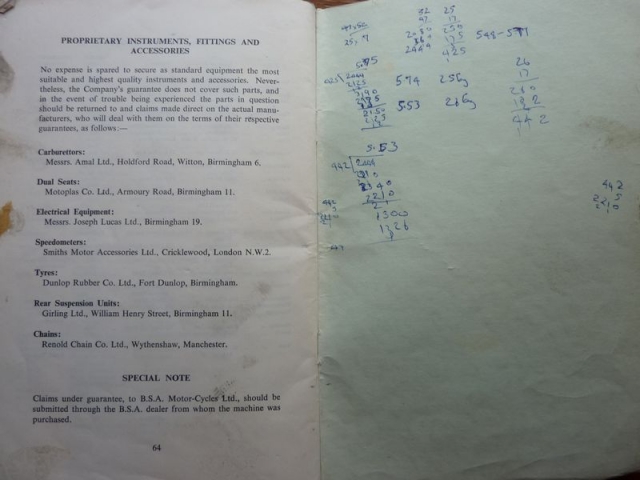 PROPRIETARY INSTRUMENTS, FITTINGS AND
ACCESSORIES
No expense is spared to secure as standard equipment the most
suitable and highest quality instruments and accessories. Never-
theless, the Company's guarantee does not cover such parts, and
in the event of trouble being experienced the parts in question
should be returned to and claims made direct on the actual manu-
facturers, who will deal with them on the terms of their respective
guarantees, as follows :—
Carburettors:
Messrs. Amal Ltd., Holdford Road, Witton, Birmingham 6.
Dual Seats:
Motoplas Co. Ltd., Armoury Road, Birmingham 11.
Electrical Equipment:
Messrs. Joseph Lucas Ltd., Birmingham 19.
Speedometers:
Smiths Motor Accessories Ltd., Cricklewood, London N.W.2.
Tyres:
Dunlop Rubber Co. Ltd., Fort Dunlop, Birmingham.
Rear Suspension Units:
Girling Ltd., William Henry Street, Birmingham 11.
Chains:
Renold Chain Co. Ltd., Wythenshaw, Manchester.
SPECIAL NOTE
Claims under guarantee, to B.S.A. Motor-Cycles Ltd., should be
submitted through the B.S.A. dealer from whom the machine was
purchased.
64
25
17
425
26
17
182
442
574
553
5.53
442
2210
1300
1326
442
2210